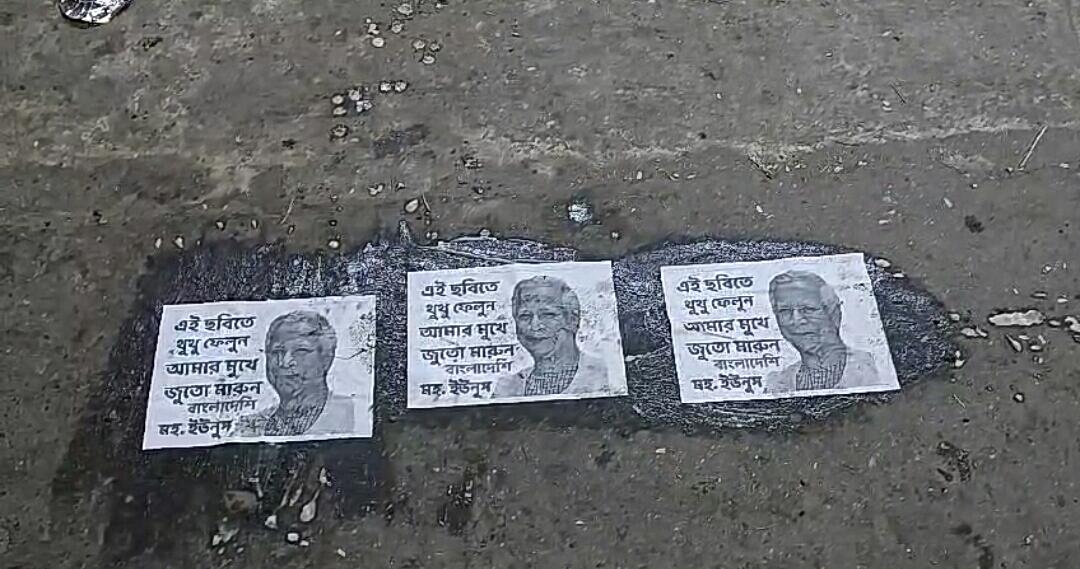 এই ছবিতে
থুথু ফেলুন
আমার মুখে
জুতো মারুন
বাংলাদেশি
মহ. ইউনুস
এই ছবিতে
থুথু ফেলুন
আমার মুখে
জুতো মারুন
বাংলাদেশি
মহ. ইউনুস
এই ছবিতে
থুথু ফেলুন
আমার মুখে
জুতো মারুন
বাংলাদেশি
মহ. ইউনুস